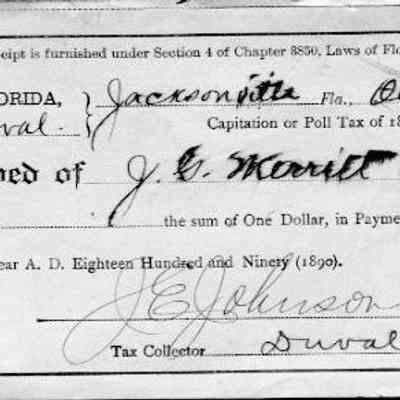 eipt is furnished under Section 4 of Chapter 3850, Laws of Flo
ORIDA, Jacksonville Fla., Oc
val. Capitation or Poll Tax of 18
ved of J. G. Merritt
the sum of One Dollar, in Payme
ear A. D. Eighteen Hundred and Ninety (1890).
J E Johnson
Tax Collector Duval